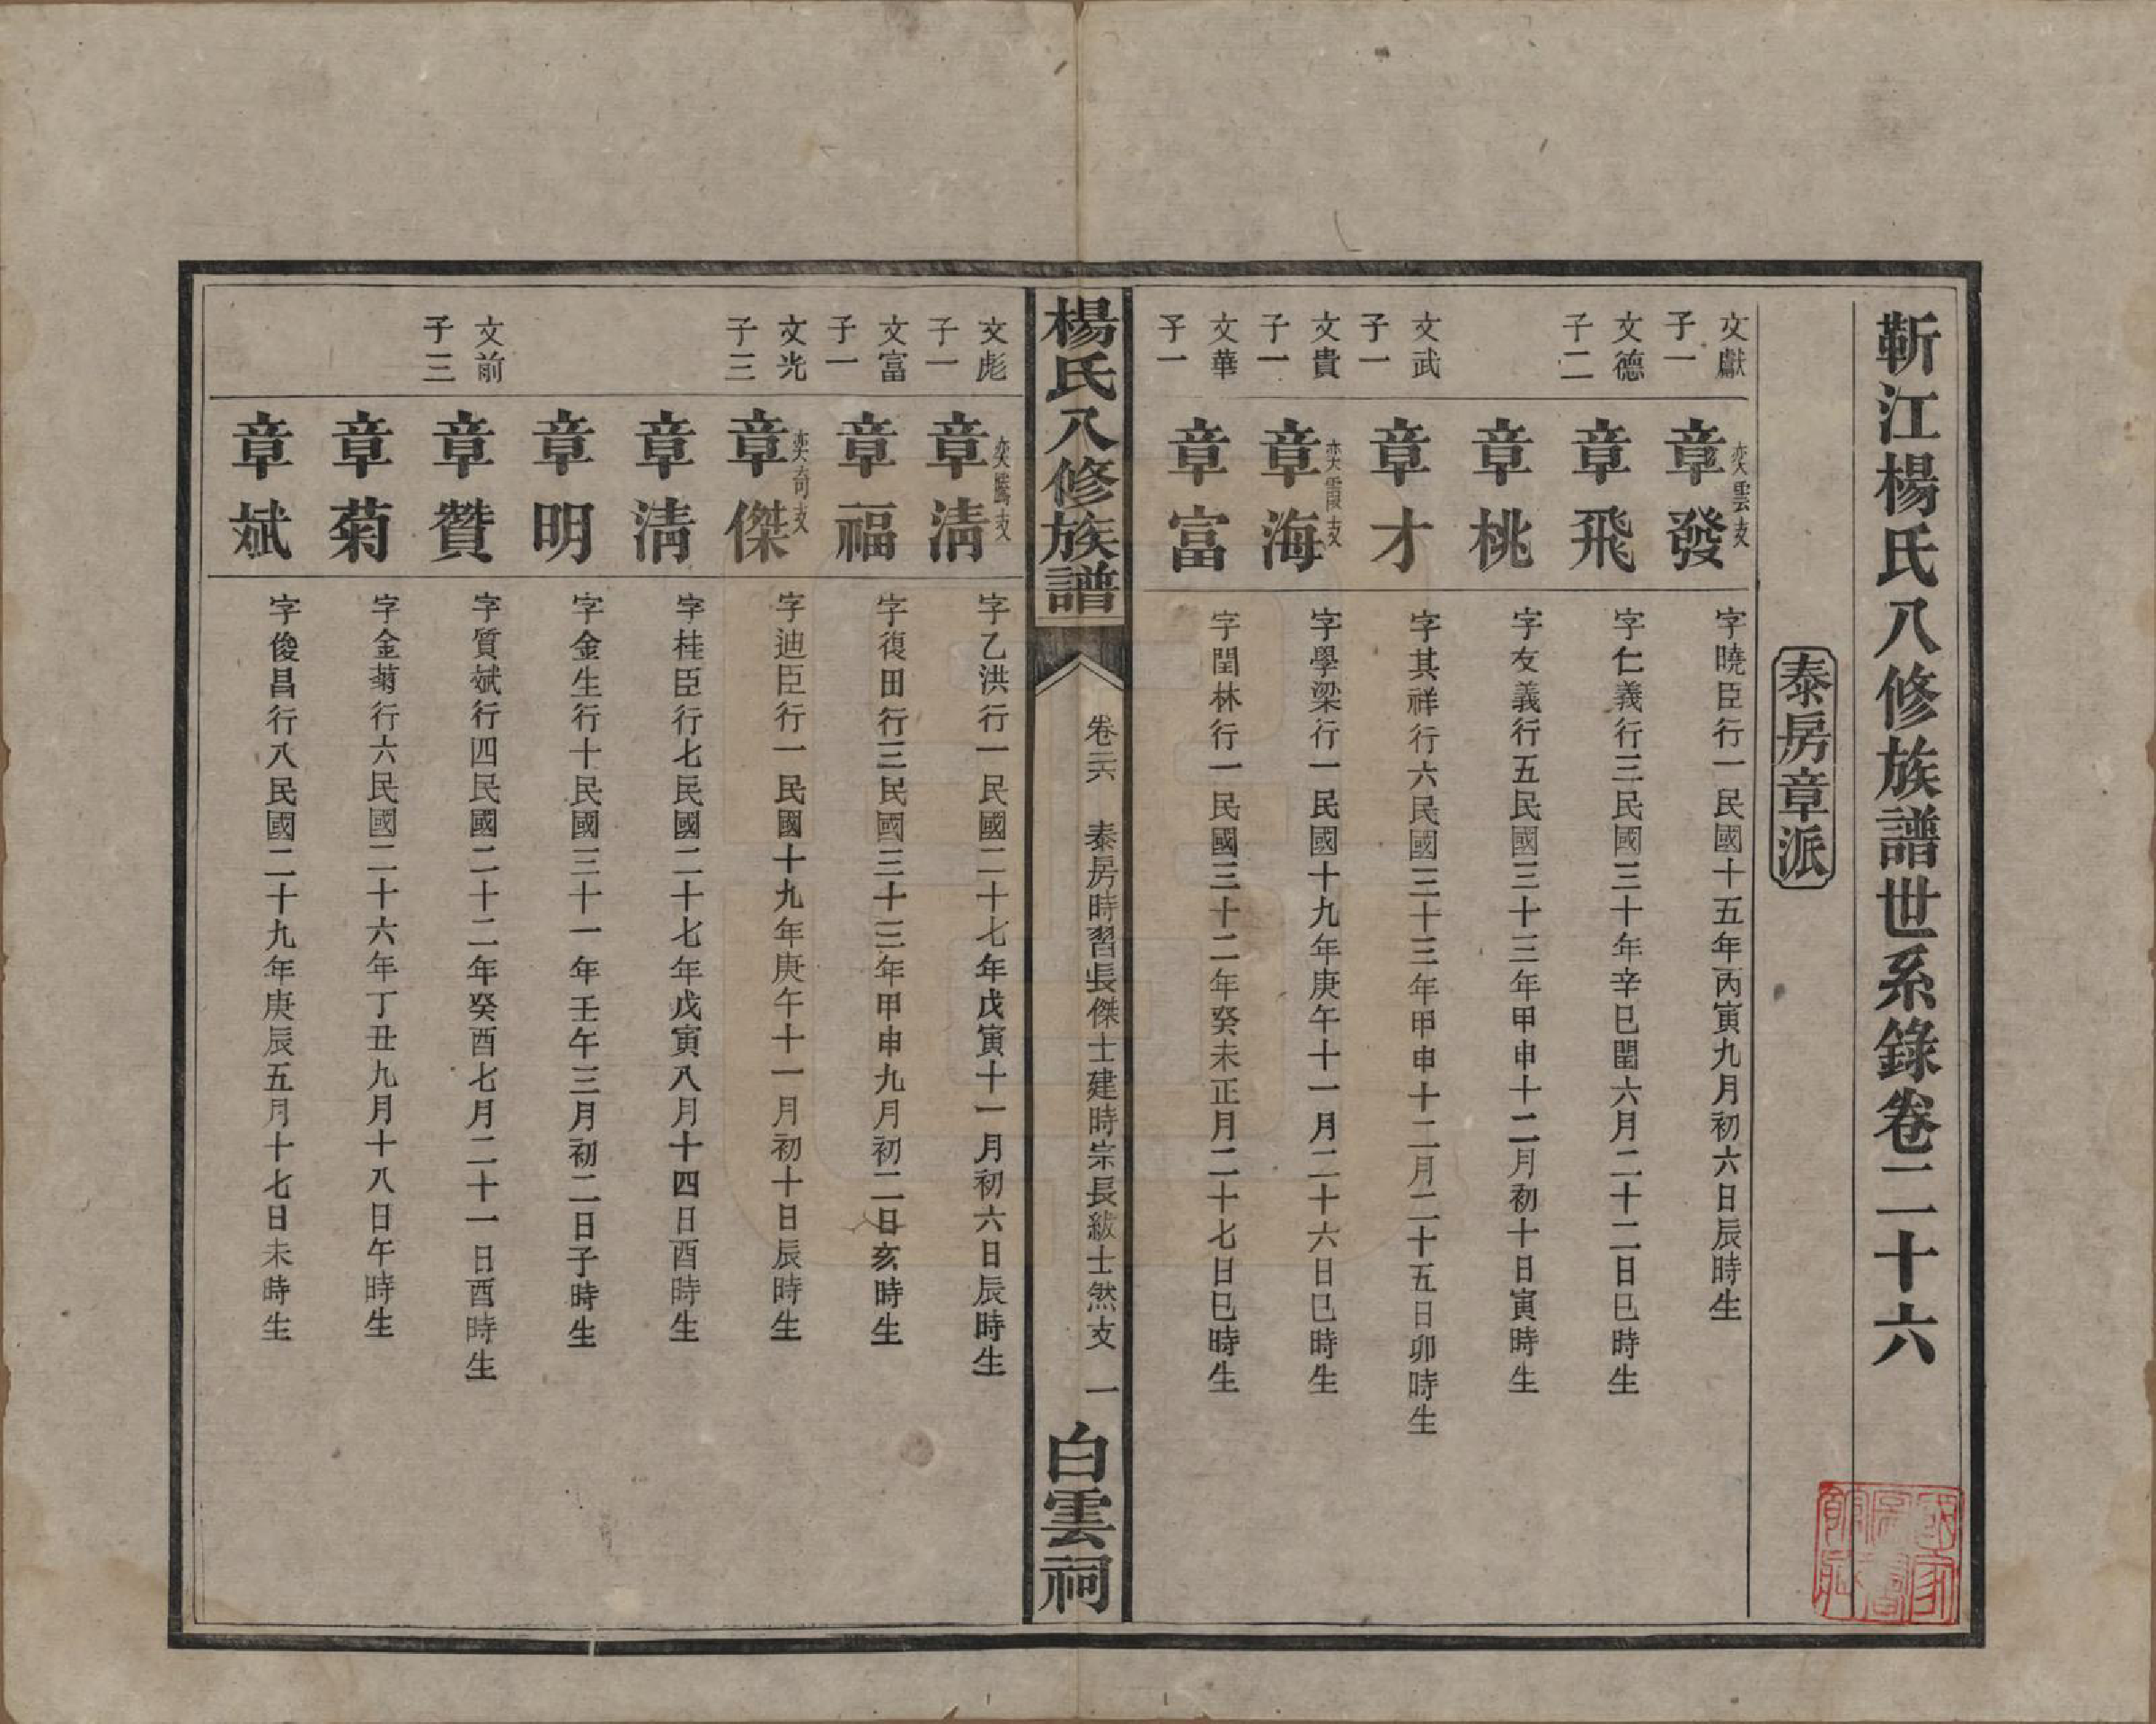 靳江楊氏八修族譜世系錄卷二十六
泰房章派
文獻子一
章發
奕雲支
字曉臣行一民國十五年丙寅九月初六日辰時生
文德子二
章飛
字仁義行三民國三十年辛巳閏六月二十二日巳時生
章桃
字友義行五民國三十三年甲申十二月初十日寅時生
文武子一
章才
字其祥行六民國三十三年甲申十二月二十五日卯時生
文貴子一
章海
奕霞支
字學梁行一民國十九年庚午十一月二十六日巳時生
文華子一
章富
字閏林行一民國三十二年癸未正月二十七日巳時生
楊氏八修族譜
卷二六
泰房時習長傑士建時宗長紱士然支
一
白雲祠
文彪子一
章清
奕騰支
字乙洪行一民國二十七年戊寅十一月初六日辰時生
文富子一
章福
字復田行三民國三十三年甲申九月初二日亥時生
文光子三
章傑
奕奇支
字迪臣行一民國十九年庚午十一月初十日辰時生
章清
字桂臣行七民國二十七年戊寅八月十四日酉時生
章明
字金生行十民國三十一年壬午三月初二日子時生
文前子三
章贊
字質斌行四民國二十二年癸酉七月二十一日酉時生
章菊
字金菊行六民國二十六年丁丑九月十八日午時生
章斌
字俊昌行八民國二十九年庚辰五月十七日未時生
國家圖書館藏